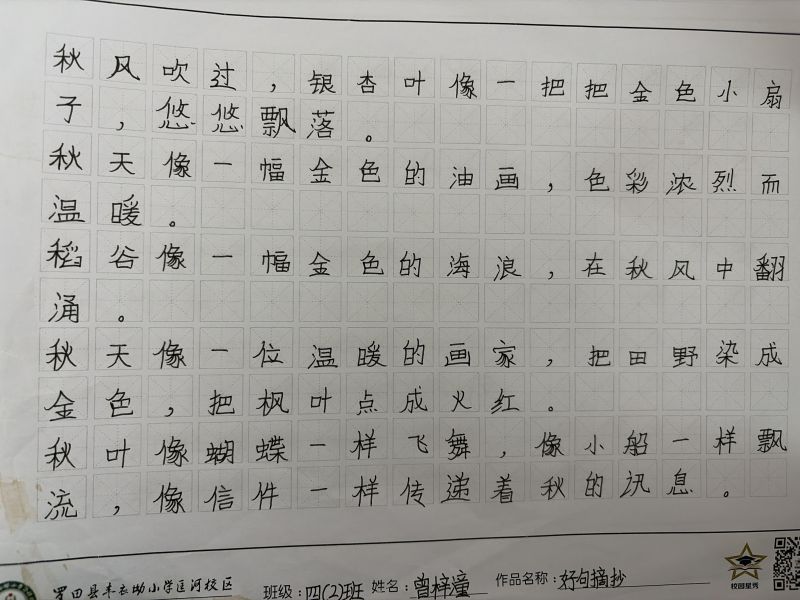 秋风吹过，银杏叶像一把把金色小扇
子，悠悠飘落。
秋天像一幅金色的油画，色彩浓烈而
温暖。
稻谷像一幅金色的海浪，在秋风中翻
涌。
秋天像一位温暖的画家，把田野染成
金色，把枫叶点成火红。
秋叶像蝴蝶一样飞舞，像小船一样飘
流，像信件一样传递着秋的讯息。
罗田县丰衣坳小学匡河校区 班级：四(2)班 姓名：曾梓潼 作品名称：好句摘抄
校园星秀